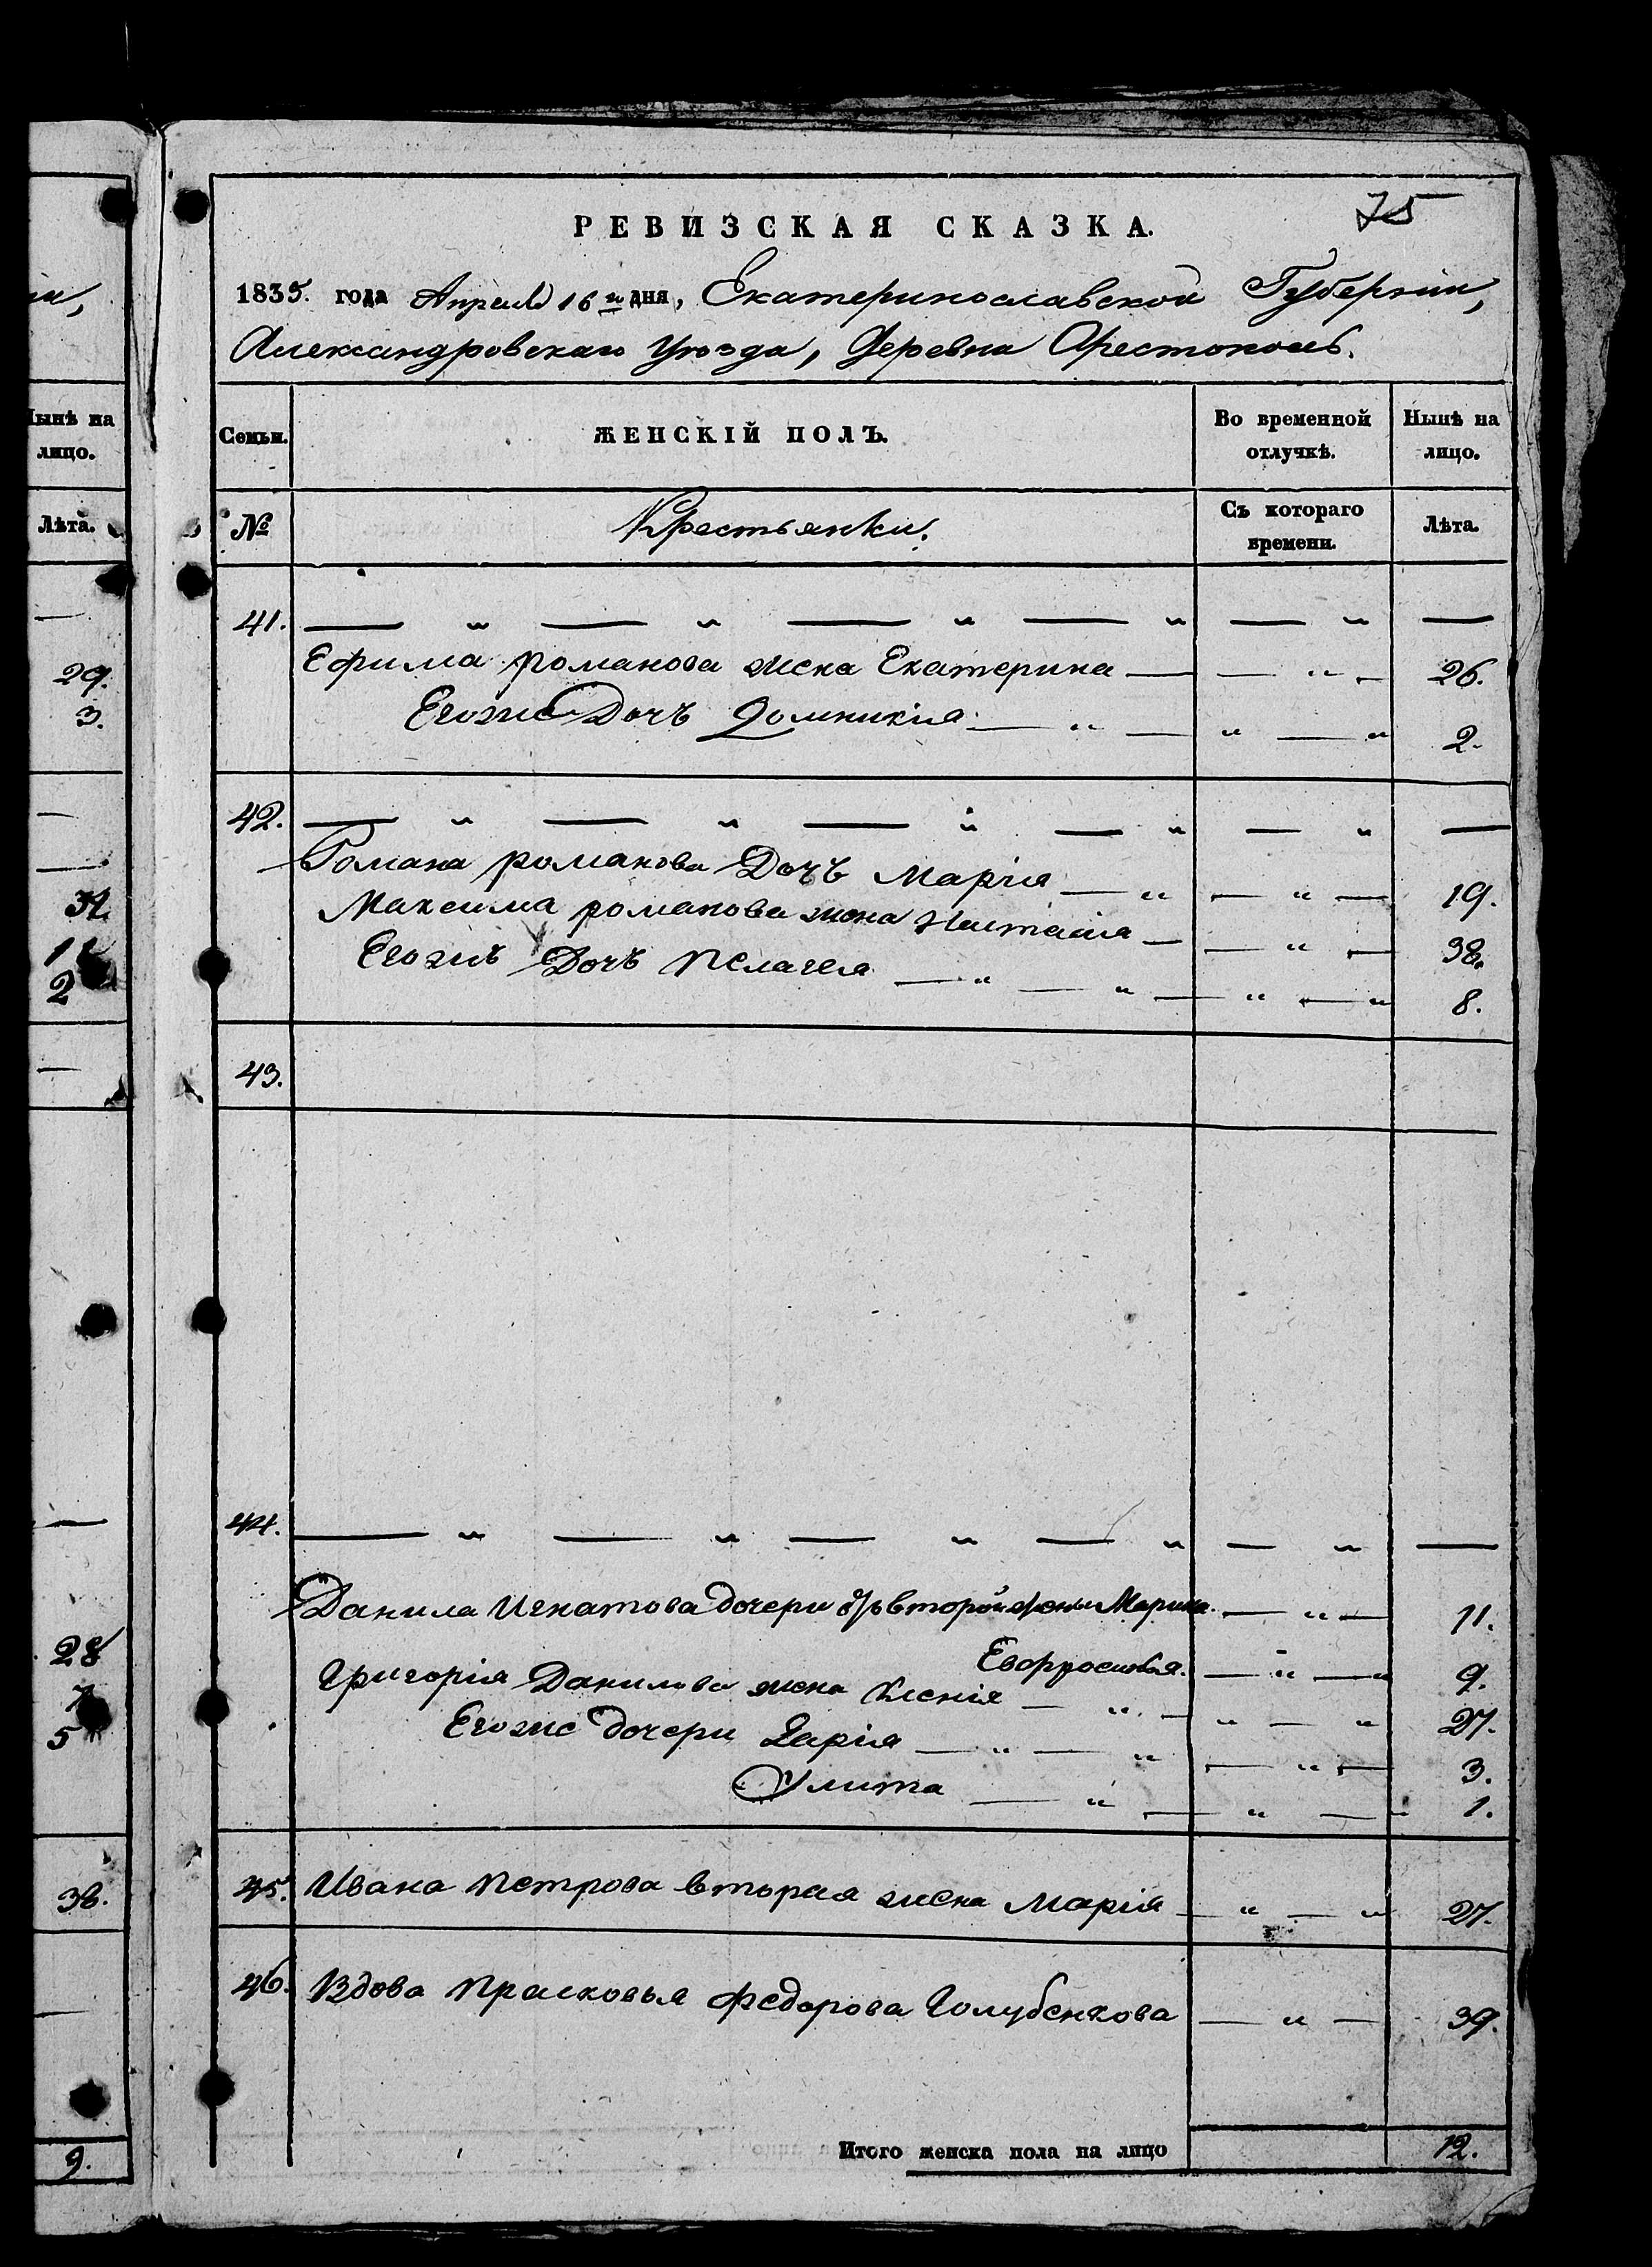 75
РЕВИЗСКАЯ СКАЗКА.
1835. года Апреля 16го дня, Екатеринославской Губернии,
Александровскаго Уезда, Деревна Арестополь.
Нынѣ на лицо.
Семьи. ЖЕНСКІЙ ПОЛЪ. Во временной отлучкѣ. Нынѣ на лицо.
Лѣта.
№ Крестьянки. Съ котораго времени. Лѣта.
41. — " — " — " — " — " —
Ефима романова жена Екатерина — — " — 26.
29.
3.
Егоже Дочъ Домникія — " — " — " 2.
42. — " — " — " — " — " —
Романа романова Дочъ Марія — " — " — 19.
Максима романова жена Настасія — — " — 38.
Егожъ Дочъ Пелагея — " — " — " — " 8.
11
2
43.
44. — " — " — " — " — " —
Данила Игнатова дочери отъ второй жены Марина — " — 11.
Евфросинья. — " — " 9.
Григорія Данилова жена Ксенія — " — " — " 27.
Егоже дочери Дарія — " — " — " — 3.
Улита — " — " — 1.
28
7
5
45. Ивана Петрова вторая жена Марія — " — " 27.
38.
46. Вдова Прасковья Федорова Голубенкова — " — 39.
Итого женска пола на лицо 12.
9.